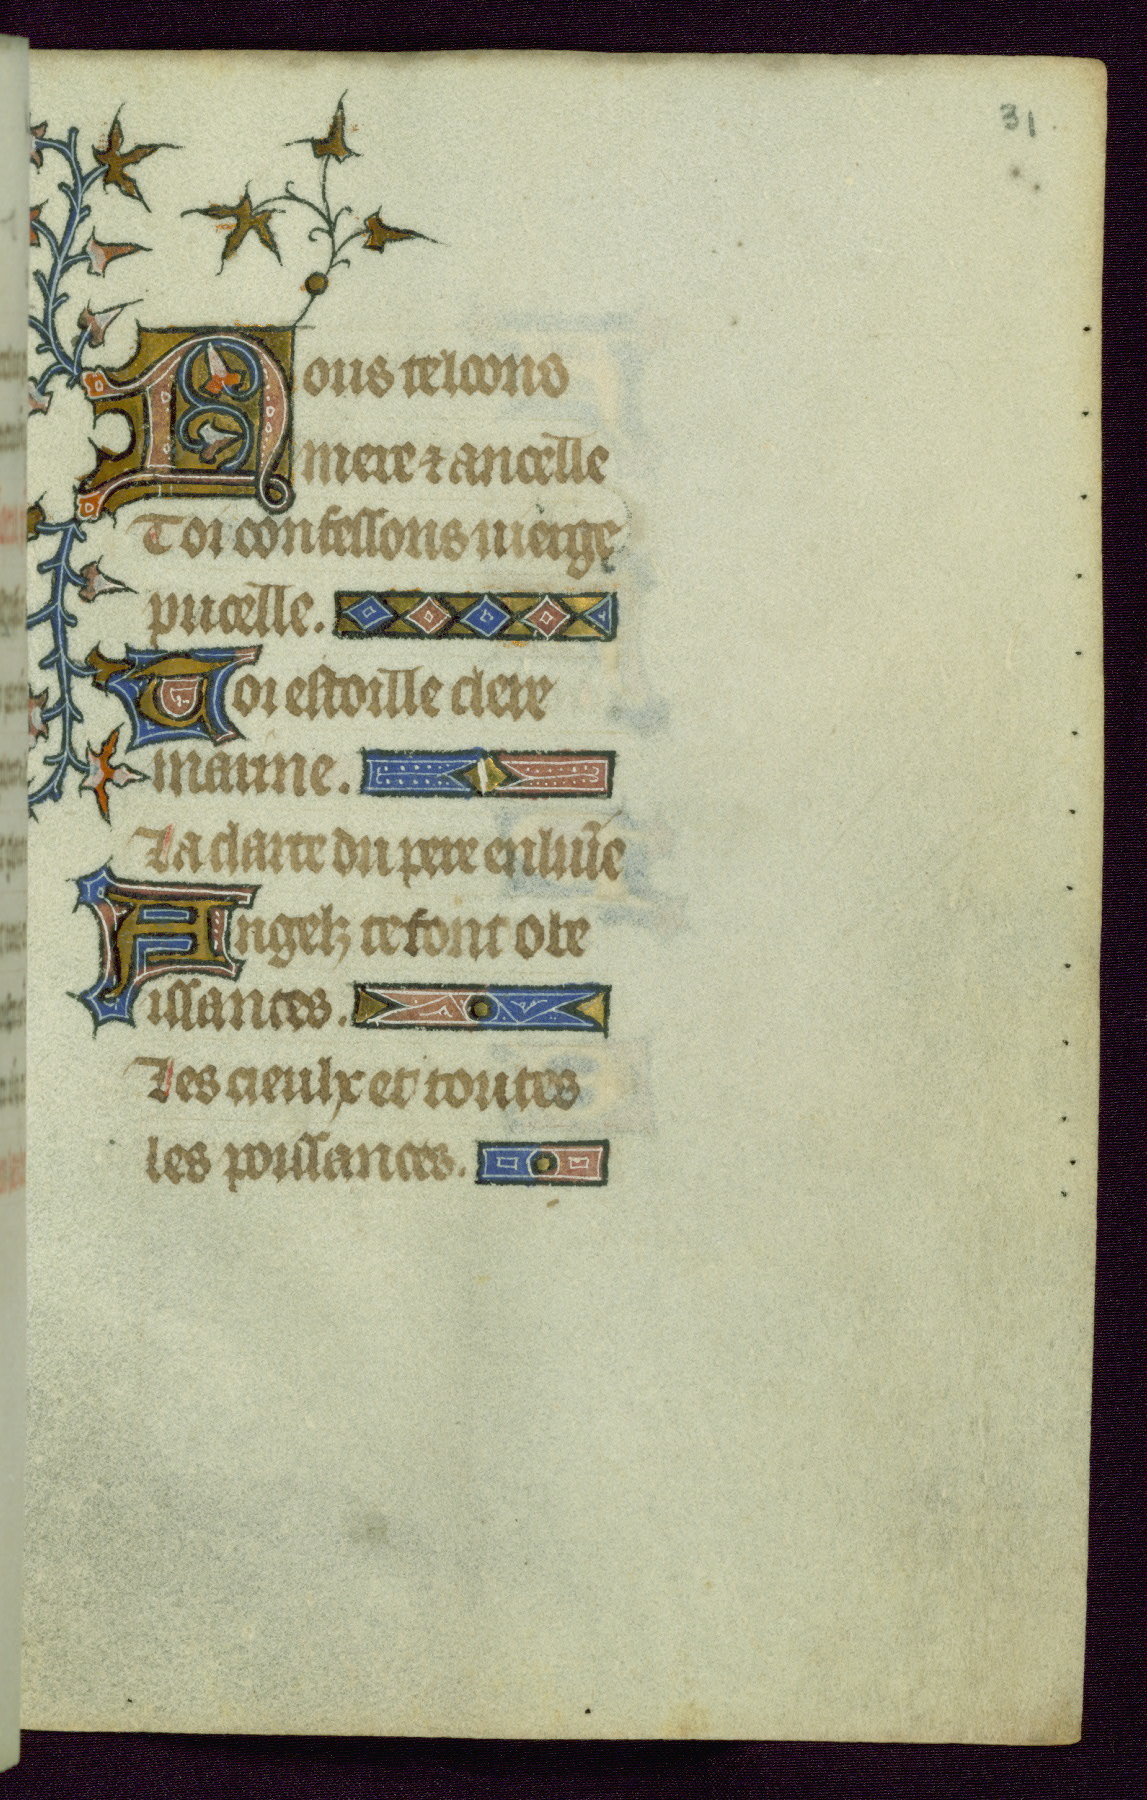 31
Nous te loons
mere ⁊ ancelle
Toi confessons uierge
pucelle.
Toi estoille clere
marine.
La clarte du pere enlumĩe
Angelz te font obe
issances.
Les cieulx et toutes
les poissances.